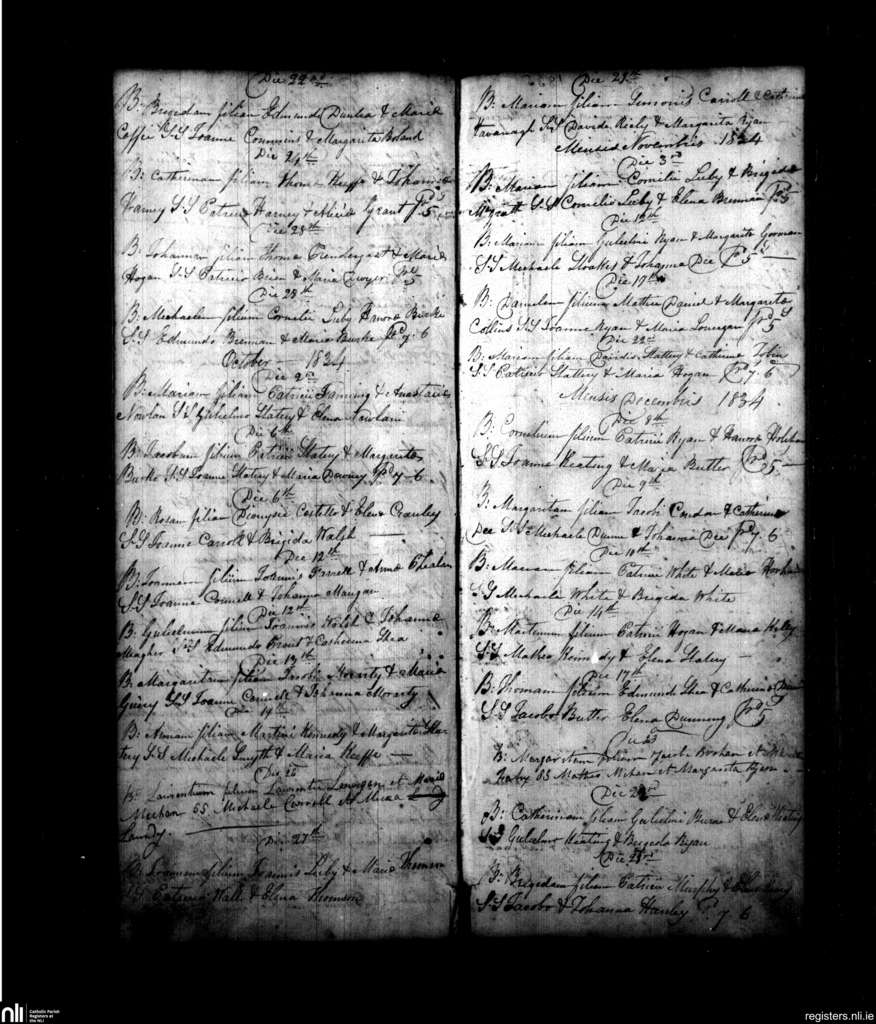 Die 22nd
B: Brigedam filiam Edmundi Dunlea & Maria
Coffee SS Joanne Commins & Margarita Boland
Die 24th
B: Catherinam filiam Thoma Keeffe & Johanna
Harney SS Patricio Harney & Alicia Grant Pd 5
Die 28th
B. Johannam filiam Thoma Prendergast & Maria
Hogan SS Patricio Brien & Maria Dwyer Pd 5
Die 28th
B. Michaelem filium Cornelii Luby Hanora Burke
SS Edmundo Brennan & Maria Burke Pd 7.6
October 1834
Die 2nd
B: Mariam filiam Patricii Fanning & Anastasia
Nowlan SS Gulielmo Slatery & Elena Nowlan
Die 6th
B: Jacobum filium Patricii Slatery & Margarita
Burke SS Joanne Slatery & Maria Downey Pd 7-6
Die 6th
B: Rosam filiam Dionysii Costello & Elena Crawley
SS Joanne Carroll & Brigida Walsh
Die 12th
B: Joannem filium Joannis Farrell & Anna
SS Joanne Connell & Johanna Mangan
Die 12th
B: Gulielmum filium Joannis Walsh & Johanna
Magher SS Edmundo Trout & Catherina Shea
Die 13th
B. Margaritam filiam Jacobi Moriarty & Maria
Guiry SS Joanne Connell & Johanna Moriarty
Die 14th
B: Annam filiam Martini Kennedy & Margarita Slat-
tery SS Michaele Smyth & Maria Keeffe
Die 26
B: Laurentium filium Laurentii Lonergan et Maria
Meehan SS Michaele Connell et Maria
Landy.
Die 27th
B: Joannem filium Joannis Luby & Maria Thomson
SS Patricio Wall & Elena Thomson
Die 29th
B. Mariam filiam Simonis Carroll & Catherina
Kavanagh SS Davide Keily & Margarita Ryan
Mensis Novembris 1834
Die 3rd
B: Mariam filiam Cornelii Luby & Brigida
McGratt SS Cornelio Luby & Elena Brennan Pd 5
Die 13th
B. Mariam filiam Gulielmi Ryan & Margarita Gorman
SS Michaele Stoakes & Johanna Dee Pd 5
Die 19th
B. Danielem filium Mathei Daniel & Margarita
Collins SS Joanne Ryan & Maria Lonergan Pd 5
Die 22nd
B: Mariam filiam Davidis Slattery & Catherina Tobin
SS Patricio Slattery & Maria Hogan Pd 7.6
Mensis Decembris 1834
Die 8th
B: Cornelium filium Patricii Ryan & Hanora
SS Joanne Keating & Maria Butler Pd 5
Die 9th
B: Margaritam filiam Jacobi Condon & Catherina
Dee SS Michaele Dunne & Johanna Dee Pd 7.6
Die 11th
B: Mariam filiam Patricii White & Maria
SS Michaele White & Brigida White
Die 14th
B: Martinum filium Patricii Hogan & Maria
SS Matheo Kennedy & Elena Slatery
Die 17th
B: Thomam filium Edmundi Shea & Catherina
SS Jacobo Butler Elena Dunning Pd 5
B: Margaritam filiam Jacobi et
SS Matheo et Margarita Ryan
Die 21st
B: Catherinam filiam Gulielmi Burne & Elena Keating
SS Gulielmo Keating & Brigida Ryan
Die 23rd
B: Brigedam filiam Patricii Murphy &
SS Jacobo & Johanna Hanley P. 7 6
nli Catholic Parish
Registers at
the NLI
registers.nli.ie